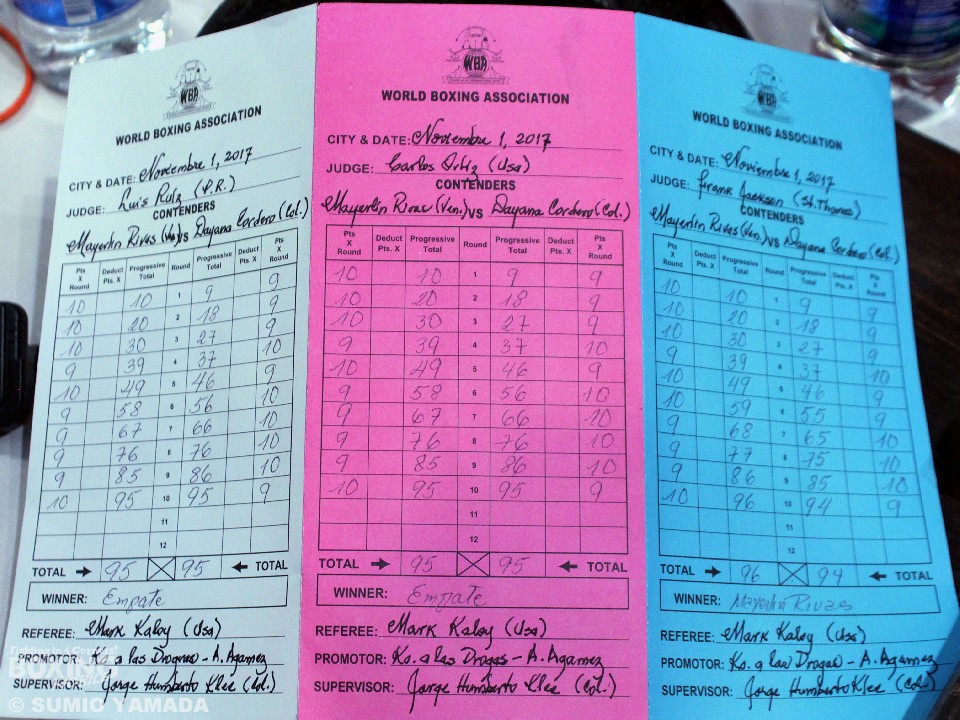 WBA
WORLD BOXING ASSOCIATION
CITY & DATE: Noviembre 1, 2017
JUDGE: Luis Ruiz (P.R.)
CONTENDERS
Mayerlin Rivas (Ven) VS Dayana Cordero (Col.)
Pts X Round Deduct Pts. X Progressive Total Round Progressive Total Deduct Pts. X Pts X Round
10 10 1 9 9
10 20 2 18 9
10 30 3 27 9
9 39 4 37 10
10 49 5 46 9
9 58 6 56 10
9 67 7 66 10
9 76 8 76 10
9 85 9 86 10
10 95 10 95 9
11
12
TOTAL 95 95 TOTAL
WINNER: Empate
REFEREE: Mark Kaloy (Usa)
PROMOTOR: Ko. a las Drogas - A. Agamez
SUPERVISOR: Jorge Humberto Klee (Col.)
WBA
WORLD BOXING ASSOCIATION
CITY & DATE: Noviembre 1, 2017
JUDGE: Carlos Ortiz (Usa)
CONTENDERS
Mayerlin Rivas (Ven.) VS Dayana Cordero (Col.)
Pts X Round Deduct Pts. X Progressive Total Round Progressive Total Deduct Pts. X Pts X Round
10 10 1 9 9
10 20 2 18 9
10 30 3 27 9
9 39 4 37 10
10 49 5 46 9
9 58 6 56 10
9 67 7 66 10
9 76 8 76 10
9 85 9 86 10
10 95 10 95 9
11
12
TOTAL 95 95 TOTAL
WINNER: Empate
REFEREE: Mark Kaloy (Usa)
PROMOTOR: Ko. a las Drogas - A. Agamez
SUPERVISOR: Jorge Humberto Klee (Col.)
WBA
WORLD BOXING ASSOCIATION
CITY & DATE: Noviembre 1, 2017
JUDGE: Frank Jackson (St. Thomas)
CONTENDERS
Mayerlin Rivas (Ven.) VS Dayana Cordero (Col.)
Pts X Round Deduct Pts. X Progressive Total Round Progressive Total Deduct Pts. X Pts X Round
10 10 1 9 9
10 20 2 18 9
10 30 3 27 9
9 39 4 37 10
10 49 5 46 9
10 59 6 55 9
9 68 7 65 10
9 77 8 75 10
9 86 9 85 10
10 96 10 94 9
11
12
TOTAL 96 94 TOTAL
WINNER: Mayerlin Rivas
REFEREE: Mark Kaloy (Usa)
PROMOTOR: Ko. a las Drogas - A. Agamez
SUPERVISOR: Jorge Humberto Klee (Col.)
© SUMIO YAMADA